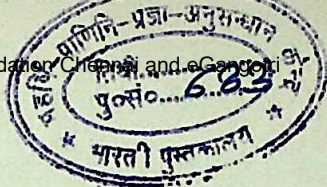 dation Chennai and eGangotri
महर्षि-पाणिनि-प्रज्ञा-अनुसन्धान
पु०सं०.... 683
भारती पुस्तकालय